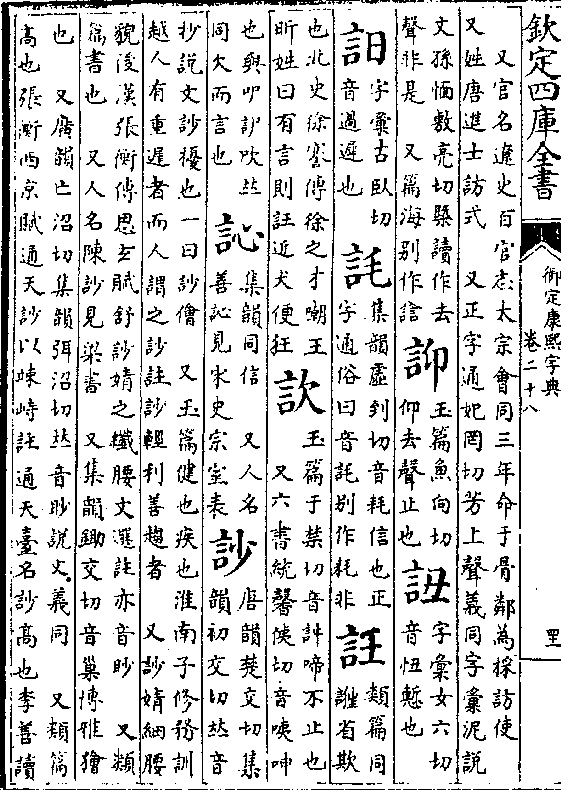 欽定四庫全書
御定康熙字典
卷二十八
又官名遼史百官志太宗會同三年命于骨鄰為採訪使
又姓唐進士訪式 又正字通妃罔切芳上聲義同字彙泥說
文孫愐敷亮切槩讀作去
聲非是 又篇海別作
玉篇魚向切
仰去聲止也
字彙女六切
音忸慙也
字彙古臥切
音過也
䚽
集韻虛到切音耗信也正
字通俗曰音託別作耗非
類篇同
誑省欺
也北史徐謇傳徐之才嘲王
昕姓曰有言則近犬便狂
玉篇于禁切音啼不止也
又六書統馨切音呻
也與吅訆吹𠀤
同欠而言也
訫
集韻同信 又人名
善訫見宋史宗室表
訬
唐韻楚交切集
韻初交切𠀤音
抄說文訬擾也一曰訬獪 又玉篇健也疾也淮南子修務訓
越人有重遲者而人謂之訬註訬輕利善趨者 又訬婧細腰
貌後漢張衡傳思玄賦舒訬婧之纖腰文選註亦音眇 又類
篇書也 又人名陳訬見梁書 又集韻鋤交切音巢博雅獪
也 又廣韻亡沼切集韻弭沼切𠀤音眇說文義同 又類篇
高也張衡西京賦通天訬以竦峙註通天臺名訬高也李善讀